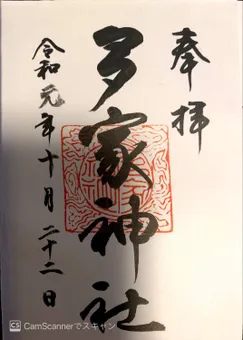 奉拝
多家神社
令和元年十月二十二日
CS CamScannerでスキャン